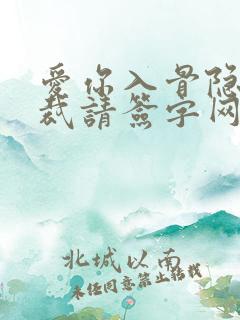 爱你入骨隐
裁請簽字网
北城以南
未经同意禁止转载